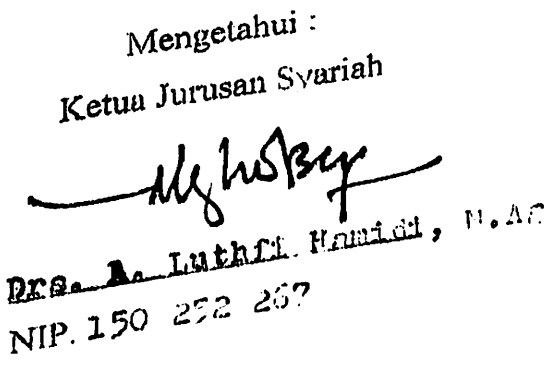 Mengetahui :
Ketua Jurusan Syariah
Drs. A. Luthfi Hamidi, M.Ag
NIP. 150 252 267